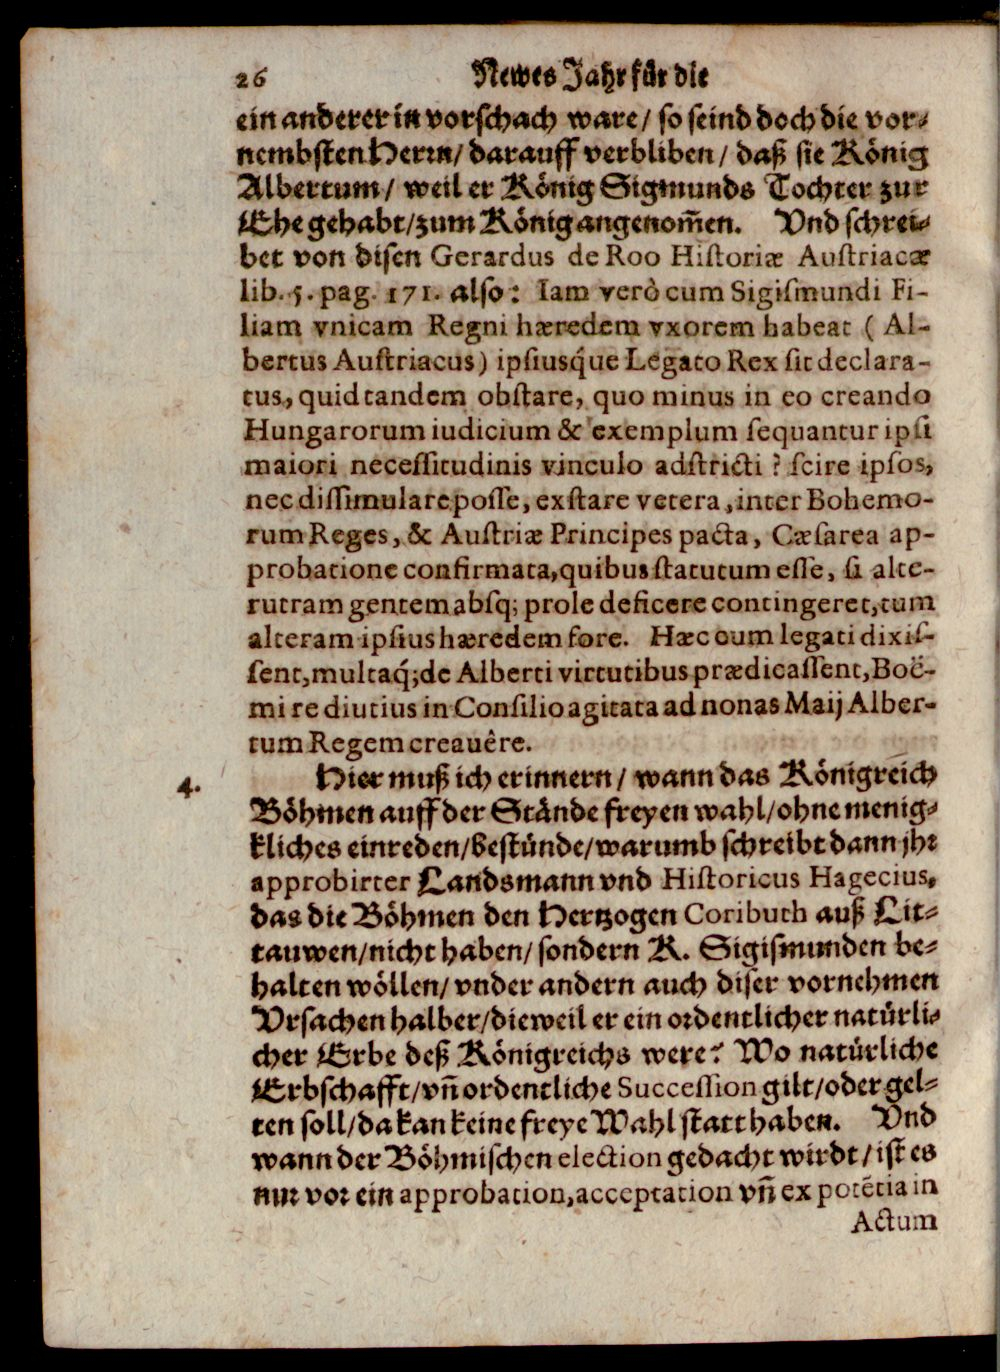 26 Newes Jahr für die
ein anderer in vorschach ware / so seind doch die vor-
nembsten Herrn / darauff verbliben / daß sie König
Albertum / weil er König Sigmunds Tochter zur
Ehe gehabt / zum König angenom̃en. Vnd schrei-
bet von disen Gerardus de Roo Hiſtoriæ Auſtriacæ
lib. 5. pag. 171. also: Iam verò cum Sigiſmundi Fi-
liam vnicam Regni hæredem vxorem habeat ( Al-
bertus Auſtriacus) ipſiusq́ue Legato Rex ſit declara-
tus, quid tandem obſtare, quo minus in eo creando
Hungarorum iudicium & exemplum ſequantur ipſi
maiori neceſſitudinis vinculo adſtricti ? ſcire ipſos,
nec diſſimulare poſſe, exſtare vetera, inter Bohemo-
rum Reges, & Auſtriæ Principes pacta, Cæſarea ap-
probatione confirmata, quibus ſtatutum eſſe, ſi alte-
rutram gentem abſq; prole deficere contingeret, tum
alteram ipſius hæredem fore. Hæc cum legati dixiſ-
ſent, multaq́; de Alberti virtutibus prædicaſſent, Boë-
mi re diutius in Conſilio agitata ad nonas Maij Alber-
tum Regem creauêre.
4. Hier muß ich erinnern / wann das Königreich
Böhmen auff der Stände freyen wahl / ohne menig-
kliches einreden / bestünde / warumb schreibt dann jhr
approbirter Landsmann vnd Hiſtoricus Hagecius,
das die Böhmen den Hertzogen Coributh auß Lit-
tauwen / nicht haben / sondern K. Sigismunden be-
halten wöllen / vnder andern auch diser vornehmen
Vrsachen halber / dieweil er ein ordentlicher natürli-
cher Erbe deß Königreichs were? Wo natürliche
Erbschafft / vñ ordentliche Succeſſion gilt / oder gel-
ten soll / da kan keine freye Wahl statt haben. Vnd
wann der Böhmischen election gedacht wirdt / ist es
nur vor ein approbation, acceptation vñ ex potẽtia in
Actum